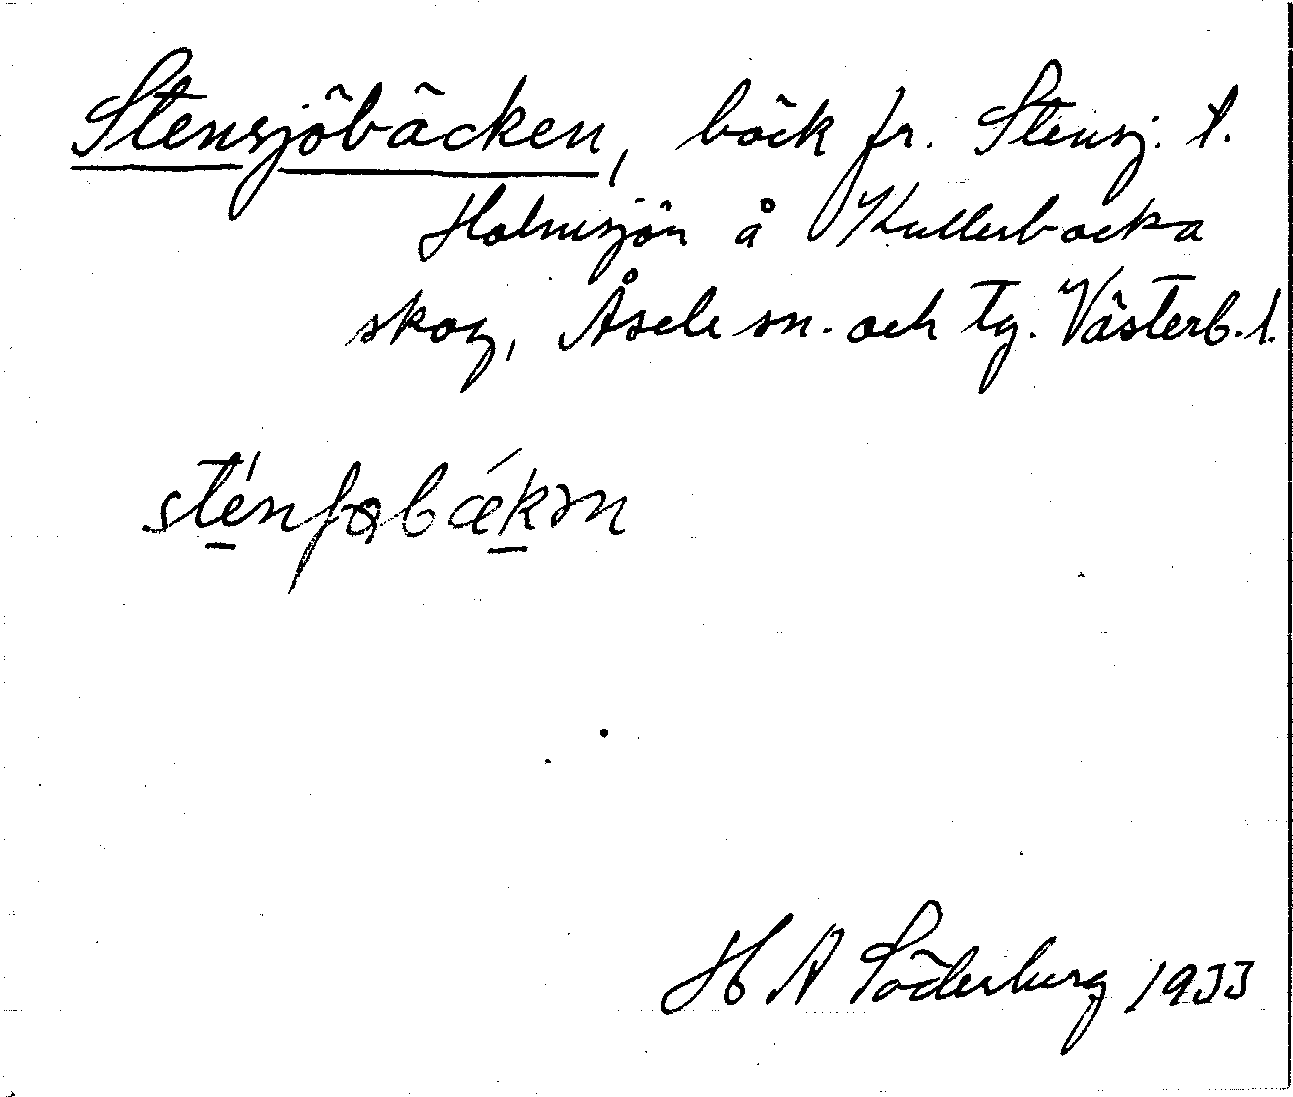 Stensjöbäcken, bäck fr. Stensj. t.
Holmsjön å Kullerbacka
skog, Åsele sn. och tg. Västerb. l.
sténʃɵbǽkən
H A Söderberg 1933